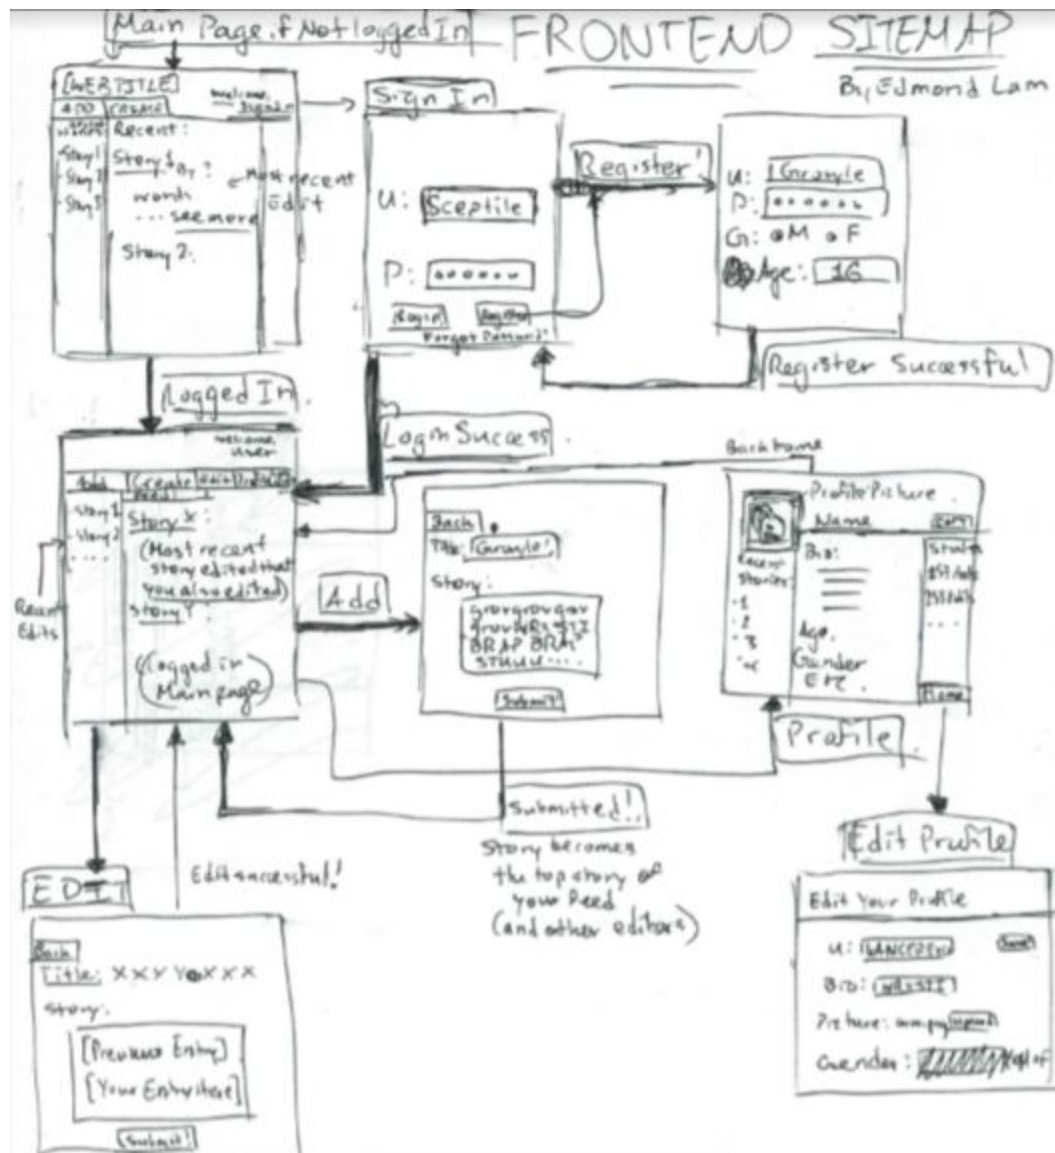 Main Page if Not logged In
FRONTEND SITEMAP
By, Edmond Lam
[WEBTITLE]
Welcome
ADD CREATE
Recent:
Story 1 By ?
Story 1
Story 2
Story 3
words
... see more
← Most recent Edit
Story 2:
Sign In
U: Sceptile
P: ••••••
Login Register
Forgot Password?
Register!
U: Grovyle
P: ••••••
G: M F
Age: 16
Register Successful
Logged In
Login Success
Welcome User
Add Create Edit Profile
Feed:
Story 1
Story 2
....
Story X:
(Most recent
story edited that
you also edited)
Story Y:
(Logged in
Main page)
Recent
Edits
Add
Back
Title: Grovyle!
Story:
grovgrovgrov
Submit!
Back home
Profile Picture
Name
Edit
Recent
Stories
-1
-2
-3
-4
Bio:
Age,
Gender
ETC.
...
Home
Profile
Submitted!
Story becomes
the top story of
your feed
(and other editors)
Edit successful!
EDIT
Back
Title: XXXYXXXX
Story:
[Previous Entry]
[Your Entry Here]
Submit!
Edit Profile
Edit Your Profile
U:
Save
Bio:
Picture: Upload
Gender: